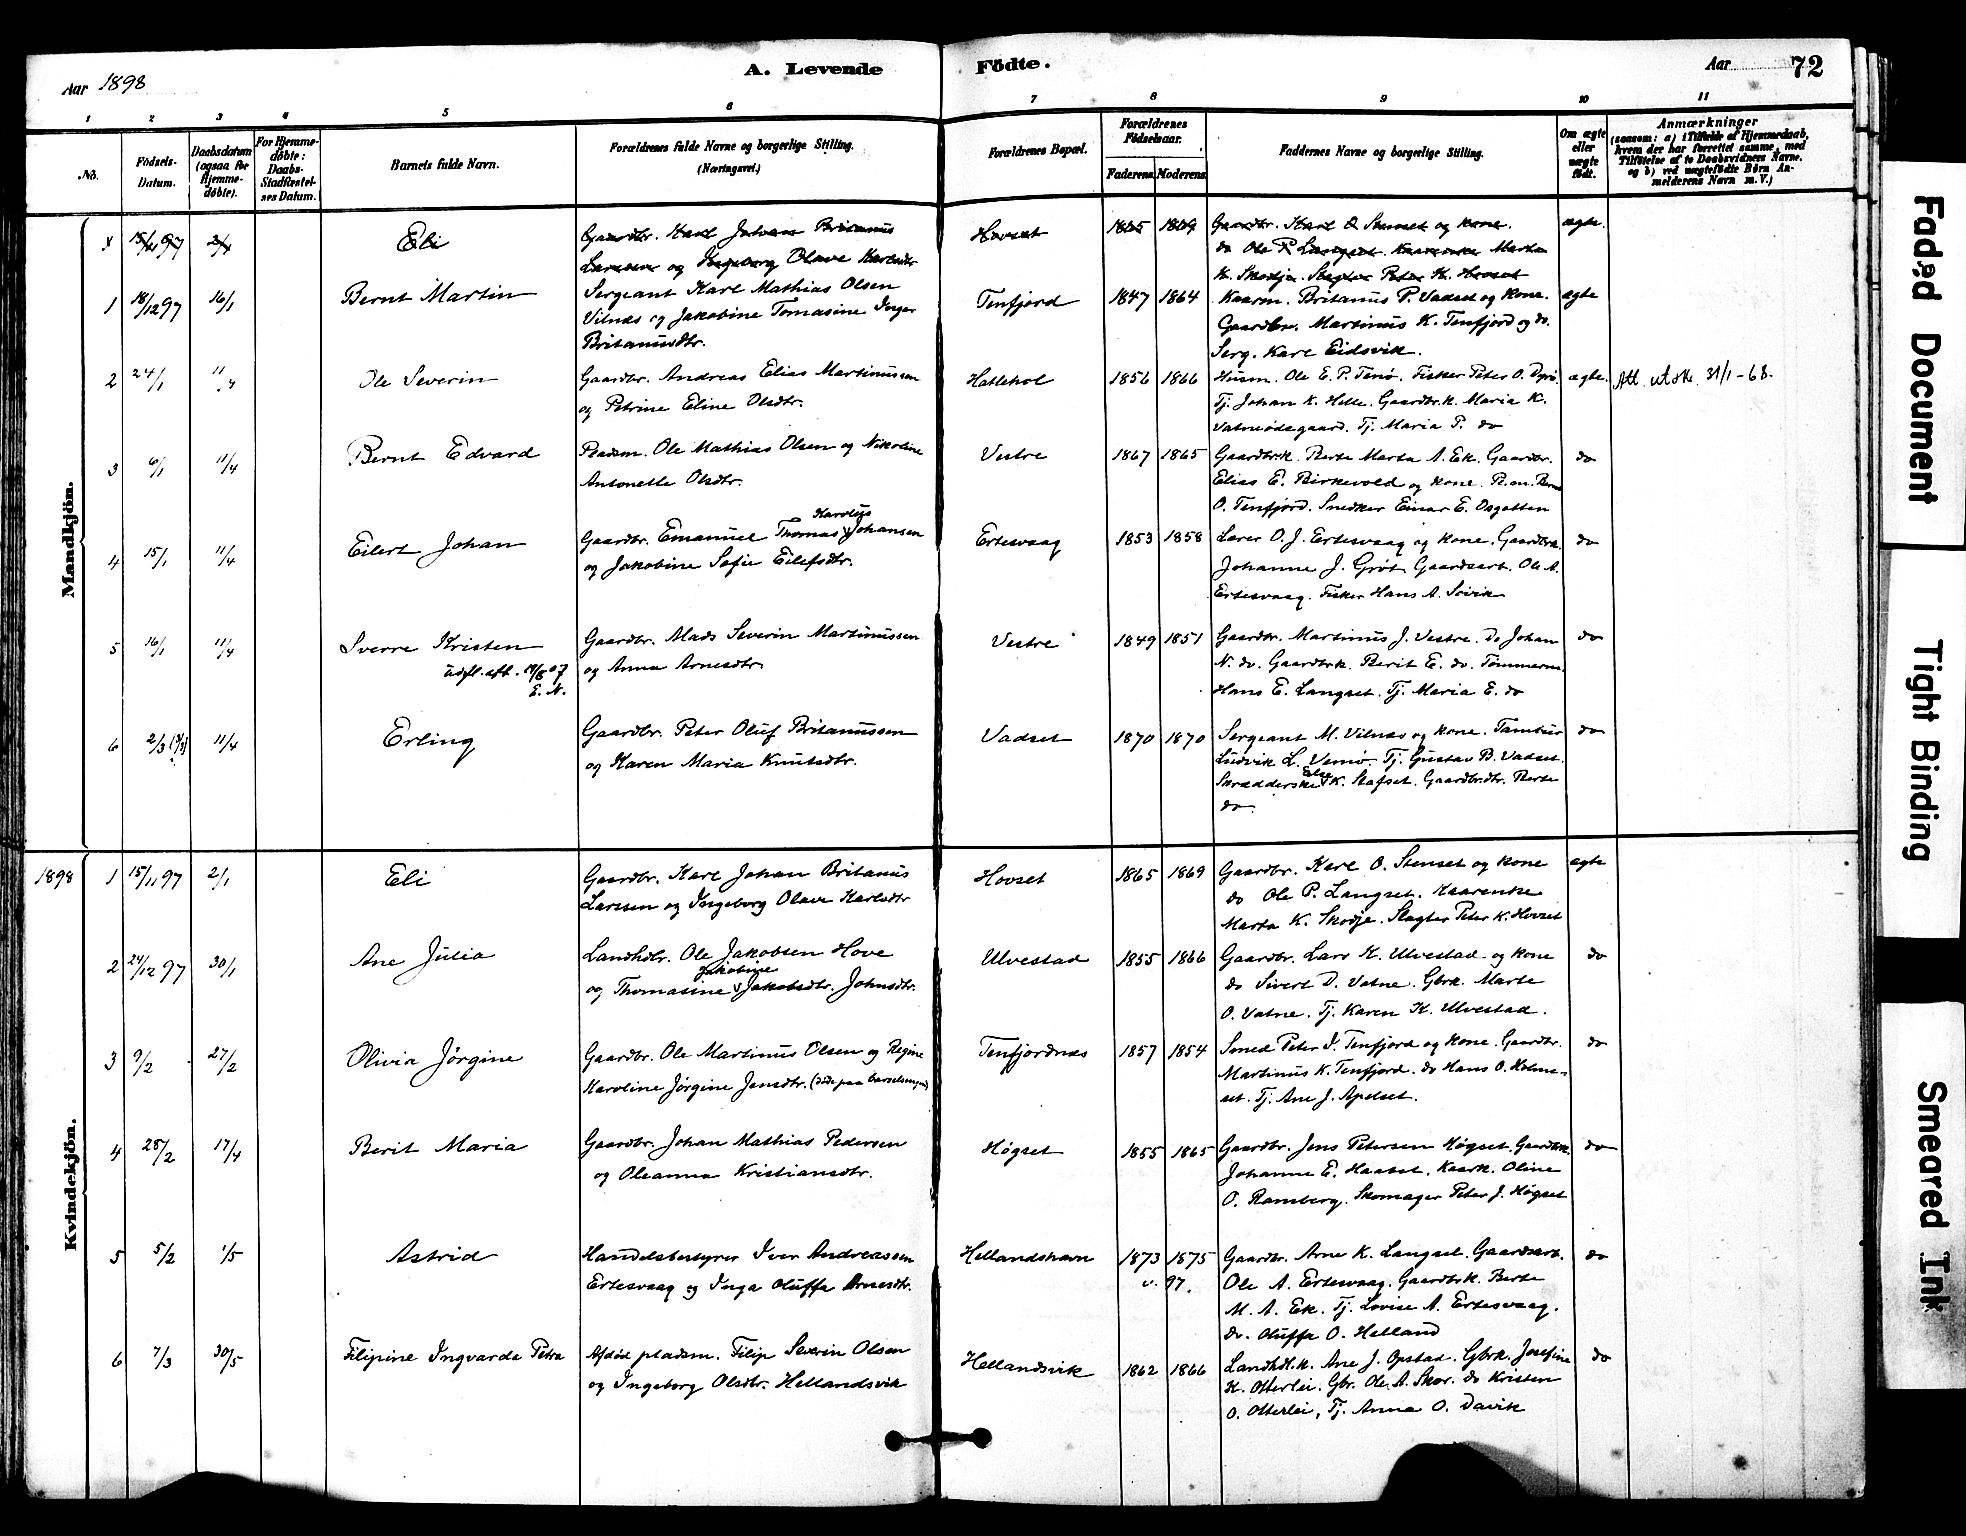 Aar 1898
A. Levende
Födte.
Aar 72
1 2 3 4 5 6 7 8 9 10 11
No.
Födsels-Datum.
Daabsdatum (ogsaa for Hjemme-döbte).
For Hjemme-döbte: Daabs-Stadfæstel-ses Datum.
Barnets fulde Navn.
Forældrenes fulde Navne og borgerlige Stilling. (Næringsvei.)
Forældrenes Bopæl.
Forældrenes Födselsaar.
Faderens Moderens
Faddernes Navne og borgerlige Stilling.
Om ægte eller uægte födt.
Anmærkninger
(saasom: a) i Tilfælde af Hjemmedaab, hvem der har forrettet samme, med Tilföielse af to Daabsvidners Navne, og b) ved uægtefödte Börn An-melderens Navn m. V.)
Mandkjön.
15/11 97 2/1 Eli Gaardbr. Karl Johan Britanus Hovset 1865 1869 Gaardbr. Karl O Stenset og kone. ægte.
Larssen og Ingeborg Olave Karlsdtr do Ole P Langset Kaarenke Marta
K. Skodje. Slagter Peter K. Hovset
1 18/12 97 16/1 Bernt Martin Sergeant Karl Mathias Olsen Tenfjord 1847 1864 Kaarm. Britanus P. Vadset og kone. ægte
Vilnæs og Jakobine Tomasine Inger Gaardbr. Martinus K. Tenfjord og do.
Britanusdtr. Serg. Karl Eidsvik.
2 24/1 11/4 Ole Severin Gaardbr. Andreas Elias Martinussen Hatlehol 1856 1866 Husm. Ole E. P. Tenø. Fisker Peter O. Dyrø. ægte. Att. utstk. 31/1-68.
og Petrine Eline Olsdtr. Tj. Johan K. Helle. Gaardbr.k. Maria K.
Vatneødegaard. Tj. Maria P. do
3 6/1 11/4 Bernt Edvard Pladsm. Ole Mathias Olsen og Nikoline Vestre 1867 1865 Gaardbr.k. Berte Marta A. Ek. Gaardbr. do
Antonette Olsdtr. Elias E. Birkevold og kone. P.m. Bernt
O. Tenfjord. Snedker Einar E. Osgatten
4 15/1 11/4 Eilert Johan Gaardbr. Emanuel Thomas Karolus Johansen Ertesvaag 1853 1858 Lærer O. J. Ertesvaag og kone. Gaardbrk. do
og Jakobine Sofie Eilefsdtr. Johanne J. Grøt Gaardsarb. Ole A.
Ertesvaag. Fisker Hans A. Søvik
5 16/1 11/4 Sverre Kristen Gaardbr. Mads Severin Martinussen Vestre 1849 1851 Gaardbr. Martinus J. Vestre. Do Johan do
udfl. att. 14/8 07 og Anna Arnesdtr. N. do. Gaardbrk. Berit E. do. Tømmerm.
E. N. Hans E. Langset. Tj. Maria E. do
6 2/3 11/4 Erling Gaardbr. Peter Oluf Britanussen Vadset 1870 1870 Sergeant M. Vilnæs og kone. Tambur do
og Karen Maria Knutsdtr. Ludvik L. Vemø. Tj. Gustav B. Vadset.
Skrædderske Else K. Stafset. Gaardbr.dtr. Berte
do
Kvindekjön.
1898 1 15/11 97 2/1 Eli Gaardbr. Karl Johan Britanus Hovset 1865 1869 Gaardbr. Karl O. Stenset og kone ægte
Larssen og Ingeborg Olave Karlsdtr do Ole P. Langset. Kaarenke
Marta K. Skodje. Slagter Peter K. Hovset
2 24/12 97 30/1 Ane Julia Landhdlr. Ole Jakobsen Hove Ulvestad 1855 1866 Gaardbr. Lars K. Ulvestad og kone do
og Thomasine Jakobine Jakobsdtr. Johnsdtr. do Sivert D. Vatne. Gbrk. Marte
O. Vatne. Tj. Karen K. Ulvestad.
3 9/2 27/2 Olivia Jørgine Gaardbr. Ole Martinus Olsen og Regine Tenfjordnæs 1857 1854 Smed Peter I. Tenfjord og kone. Gaardbr. do
Karoline Jørgine Jensdtr. (døde paa barselsengen) Martinus K. Tenfjord. do Hans O. Holme-
set. Tj. Ane J. Apelset.
4 28/2 17/4 Berit Maria Gaardbr. Johan Mathias Pedersen Høgset 1855 1865 Gaardbr. Jens Petersen Høgset. Gaardbk. do
og Oleanna Kristiansdtr. Johanne E. Haaset. Kaark. Oline
O. Ramberg. Skomager Peter J. Høgset
5 5/2 1/5 Astrid Handelsbestyrer Iver Andreassen Hellandshavn 1873 1875 Gaardbr. Arne K. Langset. Gaardsarb. do
Ertesvaag og Inga Oluffa Arnesdtr. v. 97. Ole A. Ertesvaag. Gaardbrk. Berte
M. A. Ek. Tj. Lovise A. Ertesvaag.
do. Oluffa O. Helland
6 7/3 30/5 Filipine Ingvarda Petra Afdød pladsm. Filip Severin Olsen Hellandsvik 1862 1866 Landhdl.k. Ane J. Opstad. Gbrk. Josefine do
og Ingeborg Olsdtr. Hellandsvik K. Otterlei. Gbr. Ole A. Skor. do Kristen
O. Otterlei, Tj. Anna O. Davik
Faded Document
Tight Binding
Smeared Ink